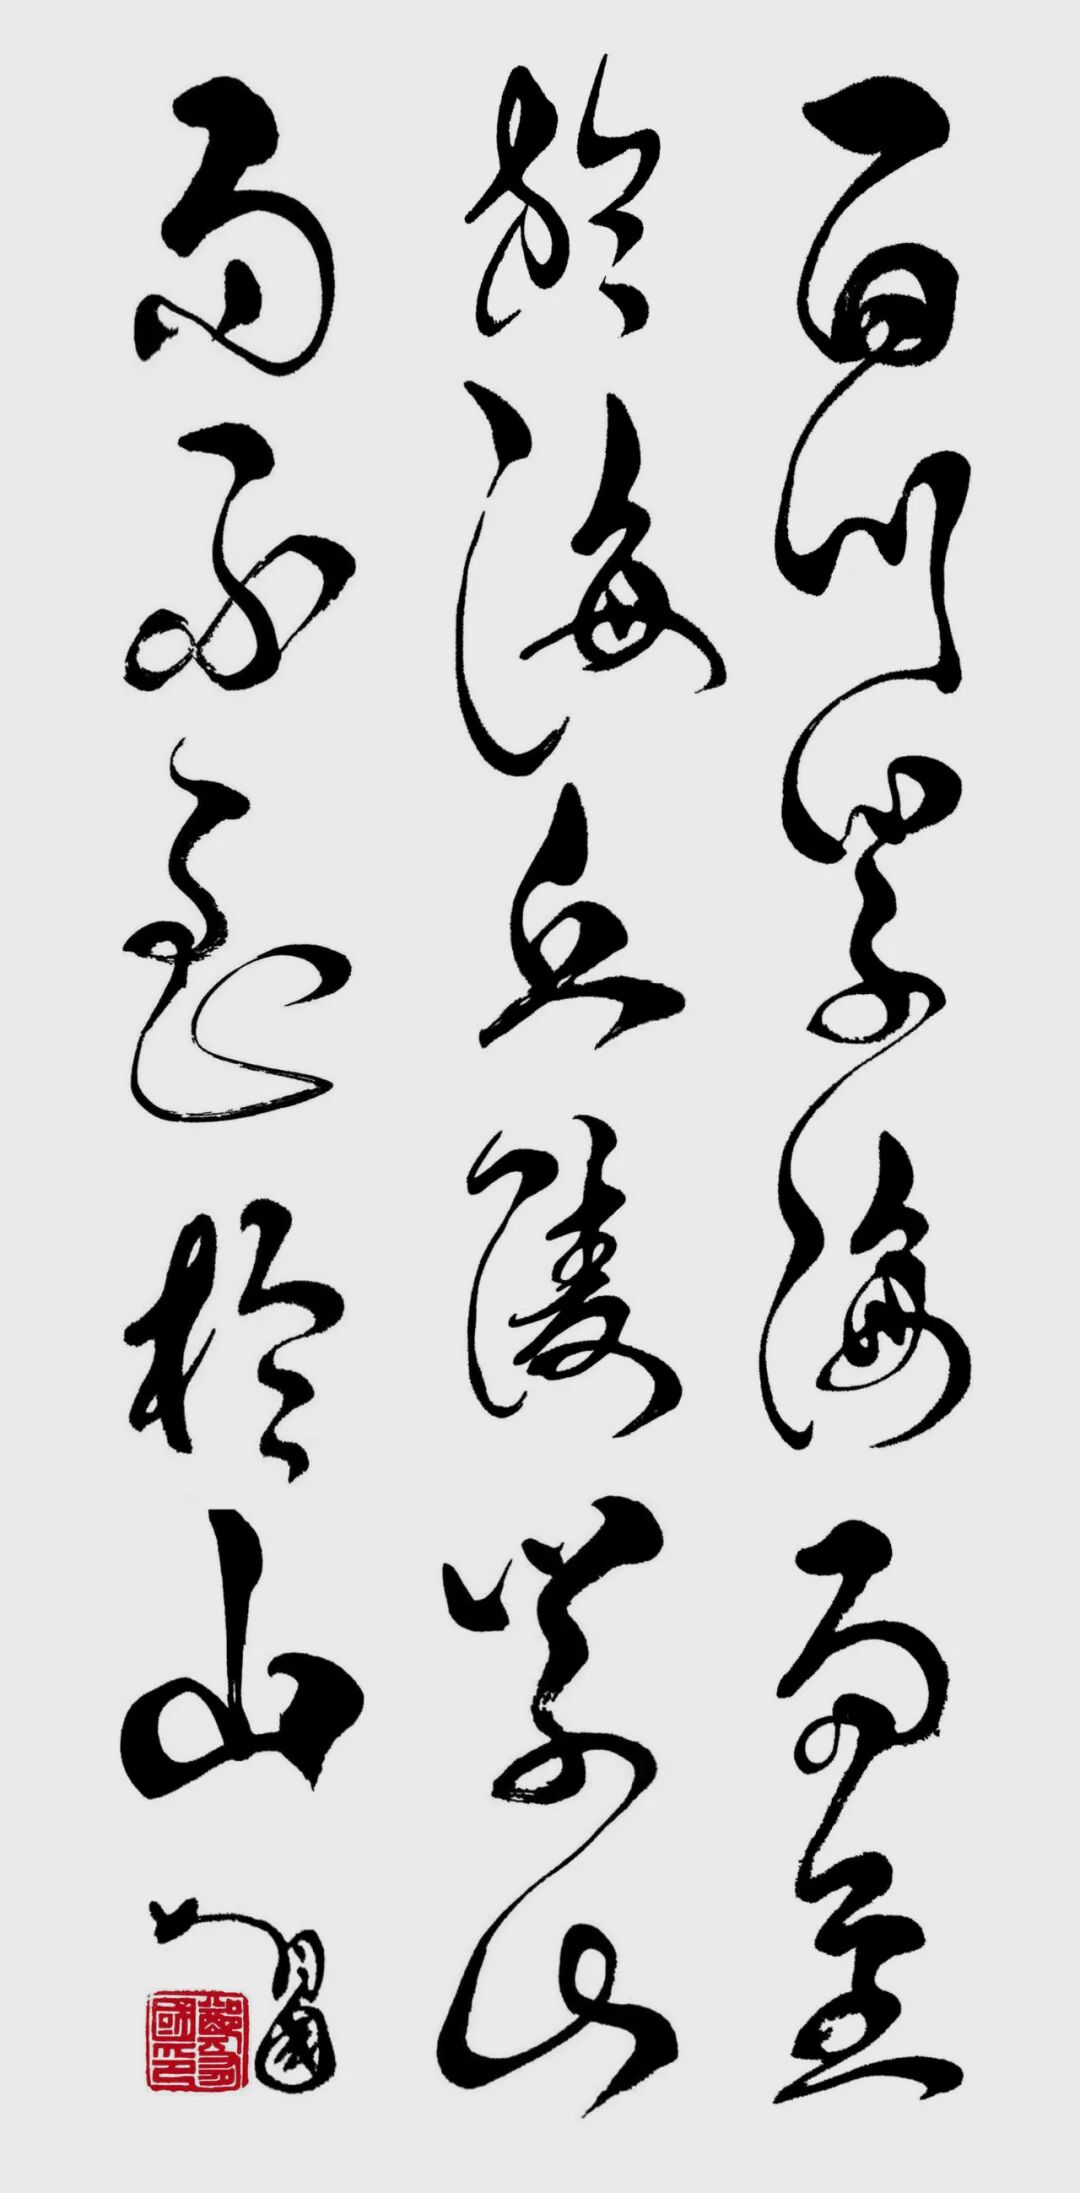 百川學海而至
於海丘陵學山
而不至於山